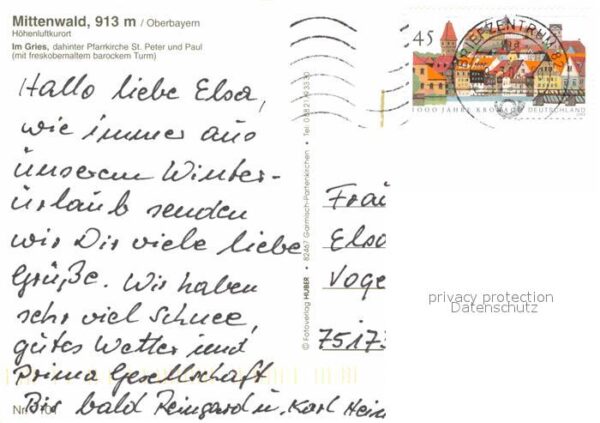 Mittenwald, 913 m / Oberbayern
Höhenluftkurort
Im Gries, dahinter Pfarrkirche St. Peter und Paul
(mit freskobemaltem barockem Turm)
Hallo liebe Elsa,
wie immer aus
unserem Winter-
urlaub senden
wir Dir viele liebe
Grüße. Wir haben
sehr viel Schnee,
gutes Wetter und
Prima Gesellschaft
Bis bald Reingard u. Karl Hein
Nr.
© Fotoverlag HUBER • 82467 Garmisch-Partenkirchen • Tel.
45
BRIEFZENTRUM 82
1000 JAHRE KRONACH DEUTSCHLAND
Frau
Elsa
Voge
7517
privacy protection
Datenschutz